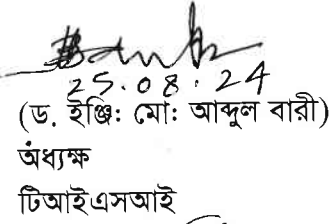 25.08.24
(ড. ইঞ্জি: মো: আব্দুল বারী)
অধ্যক্ষ
টিআইএসআই